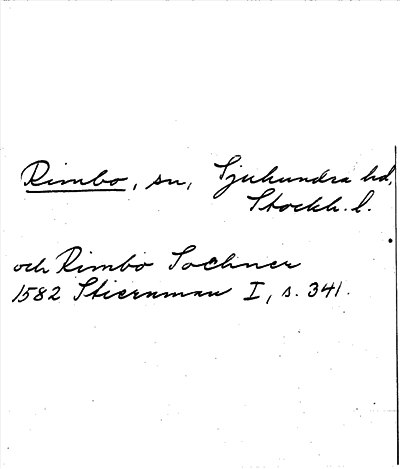 Rimbo, sn, Sjuhundra hd,
Stockh. l.
och Rimbo Sochner
1582 Stiernman I, s. 341.